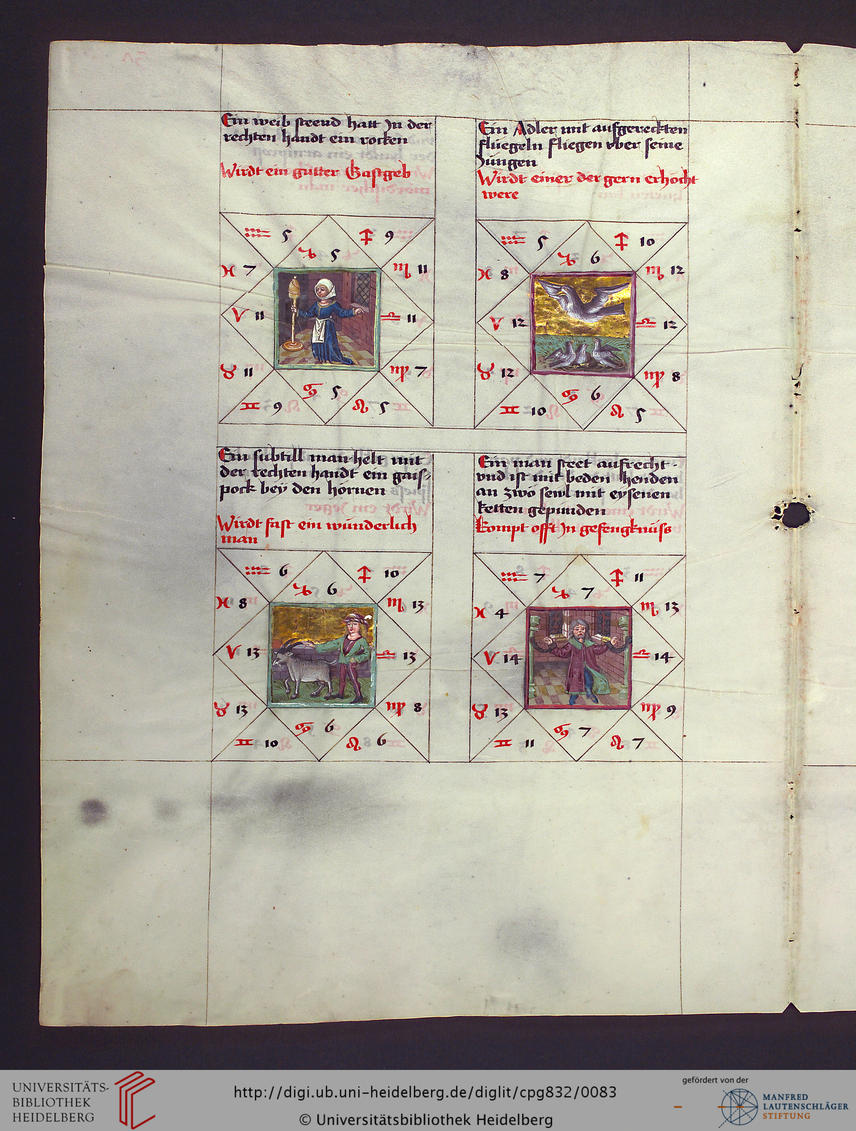 Ein weib steend hatt Jn der
rechten handt ein rocken
Wirdt ein gutter Gastgeb
♒ 5
♐ 9
♑ 5
♓ 7
♏ 11
♈ 11
♎ 11
♉ 11
♍ 7
♋ 5
♊ 9
♌ 5
Ein Adler mit aufgereckten
fluegeln fliegen vber seine
Jungen
Wirdt einer der gern erhocht
were
♒ 5
♐ 10
♑ 6
♓ 8
♏ 12
♈ 12
♎ 12
♉ 12
♍ 8
♋ 6
♊ 10
♌ 5
Ein subtill man helt mit
der rechten handt ein gais-
pock bey den hornen
Wirdt fast ein wunderlich
man
♒ 6
♐ 10
♑ 6
♓ 8
♏ 13
♈ 13
♎ 13
♉ 13
♍ 8
♋ 6
♊ 10
♌ 6
Ein man steet aufrecht
vnd ist mit beden henden
an zwo sewl mit eysenen
ketten gepunden
Kompt offt Jn gefengknuss
♒ 7
♐ 11
♑ 7
♓ 4
♏ 13
♈ 14
♎ 14
♉ 13
♍ 9
♋ 7
♊ 11
♌ 7
UNIVERSITÄTS-
BIBLIOTHEK
HEIDELBERG
http://digi.ub.uni-heidelberg.de/diglit/cpg832/0083
© Universitätsbibliothek Heidelberg
gefördert von der
MANFRED
LAUTENSCHLÄGER
STIFTUNG